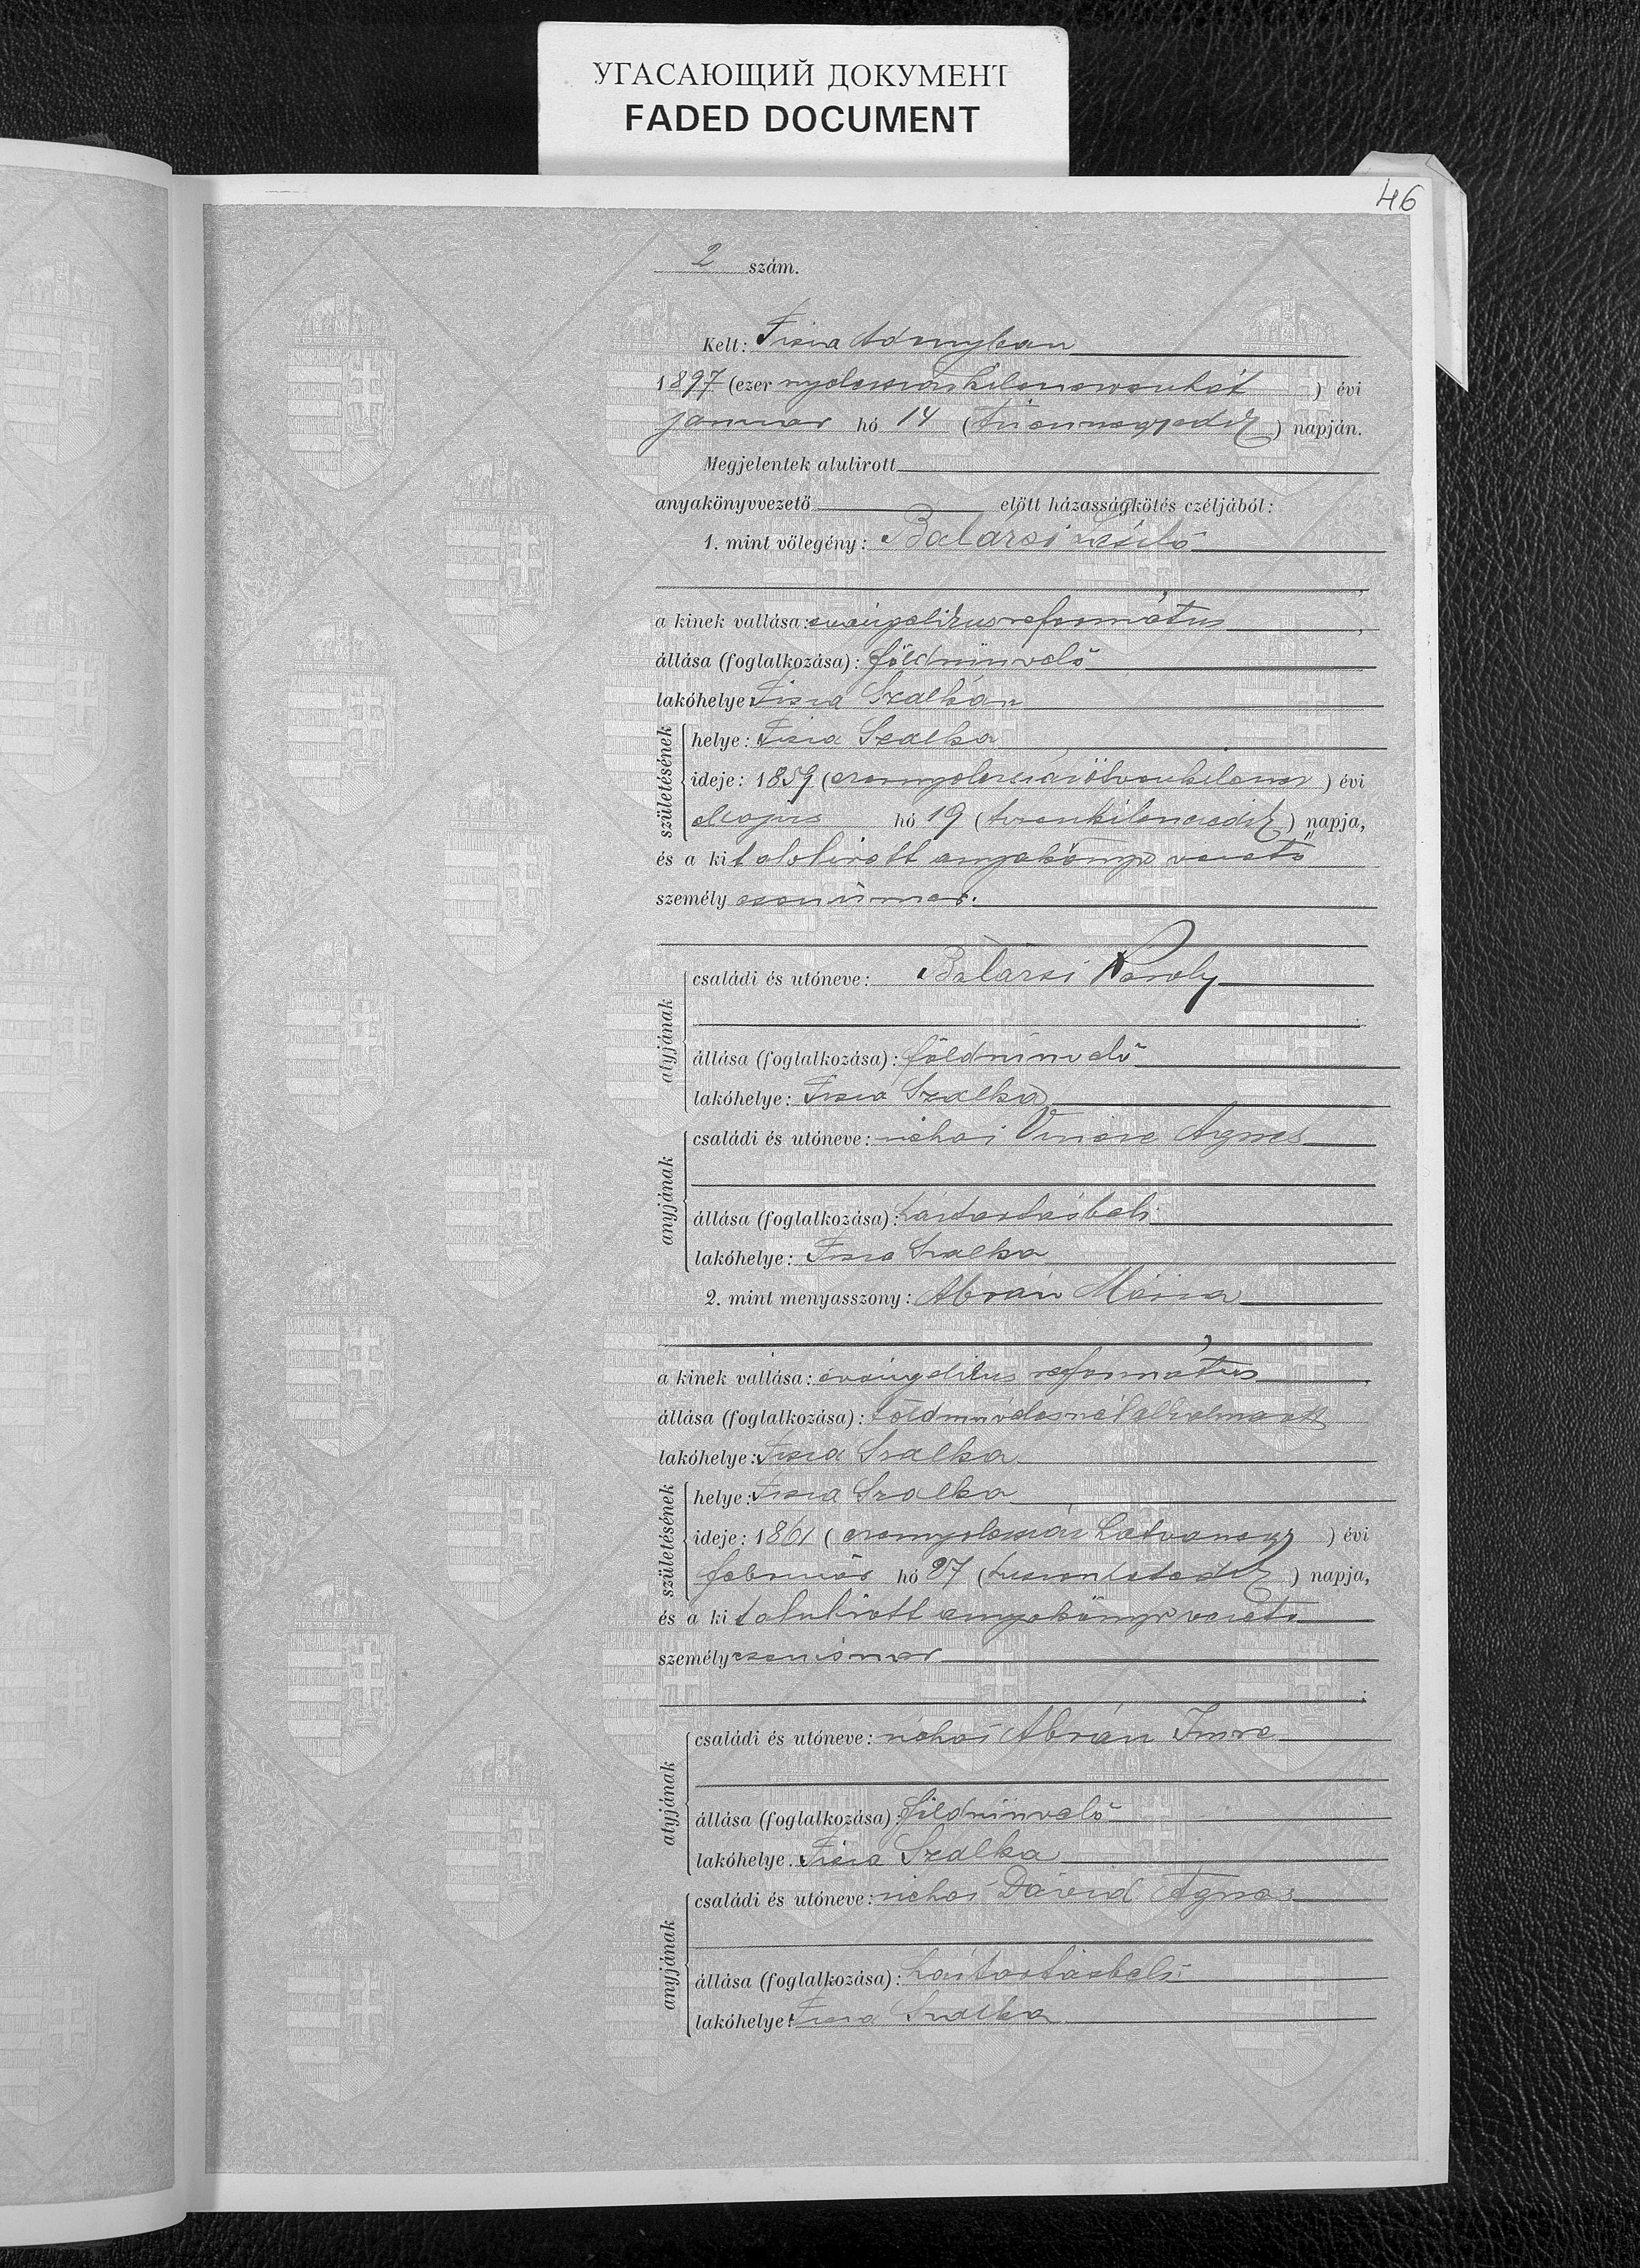 УГАСАЮЩИЙ ДОКУМЕНТ
FADED DOCUMENT
46
2 szám.
Kelt: Tisza Adonyban
1897 (ezer nyolczszázkilenczvenhét) évi
január hó 14 (tizennegyedik) napján.
Megjelentek alulirott
anyakönyvvezető előtt házasságkötés czéljából:
1. mint vőlegény: Balázsi László
a kinek vallása: evángelikus református
állása (foglalkozása): földmünvelő
lakóhelye: Tisza Szalkán
születésének
helye: Tisza Szalka
ideje: 1859 (ezernyolczszázötvenkilencz) évi
Majus hó 19 (tizenkilenczedik) napja,
és a kit alulirott anyakönyv vezető
személy
atyjának
családi és utóneve: Balázsi Károly
állása (foglalkozása): földmünvelő
lakóhelye: Tisza Szalka
anyjának
családi és utóneve: néhai Vincze Ágnes
állása (foglalkozása): háztartásbeli
lakóhelye: Tisza Szalka
2. mint menyasszony: Ábrán Mária
a kinek vallása: evángelikus református
állása (foglalkozása): földmüvelésnél alkalmazott
lakóhelye: Tisza Szalka
születésének
helye: Tisza Szalka
ideje: 1861 (ezernyolczszáz hatvanegy) évi
február hó 27 (huszonhetedik) napja,
és a kit alulirott anyakönyv vezető
személy
atyjának
családi és utóneve: néhai Ábrán Imre
állása (foglalkozása): földmünvelő
lakóhelye: Tisza Szalka
anyjának
családi és utóneve: néhai Dávid Ágnes
állása (foglalkozása): háztartásbeli
lakóhelye: Tisza Szalka